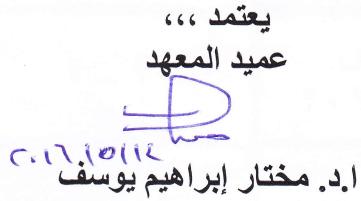 يعتمد ،،،
عميد المعهد
٢٠١٦/٥/١٤
ا.د. مختار إبراهيم يوسف